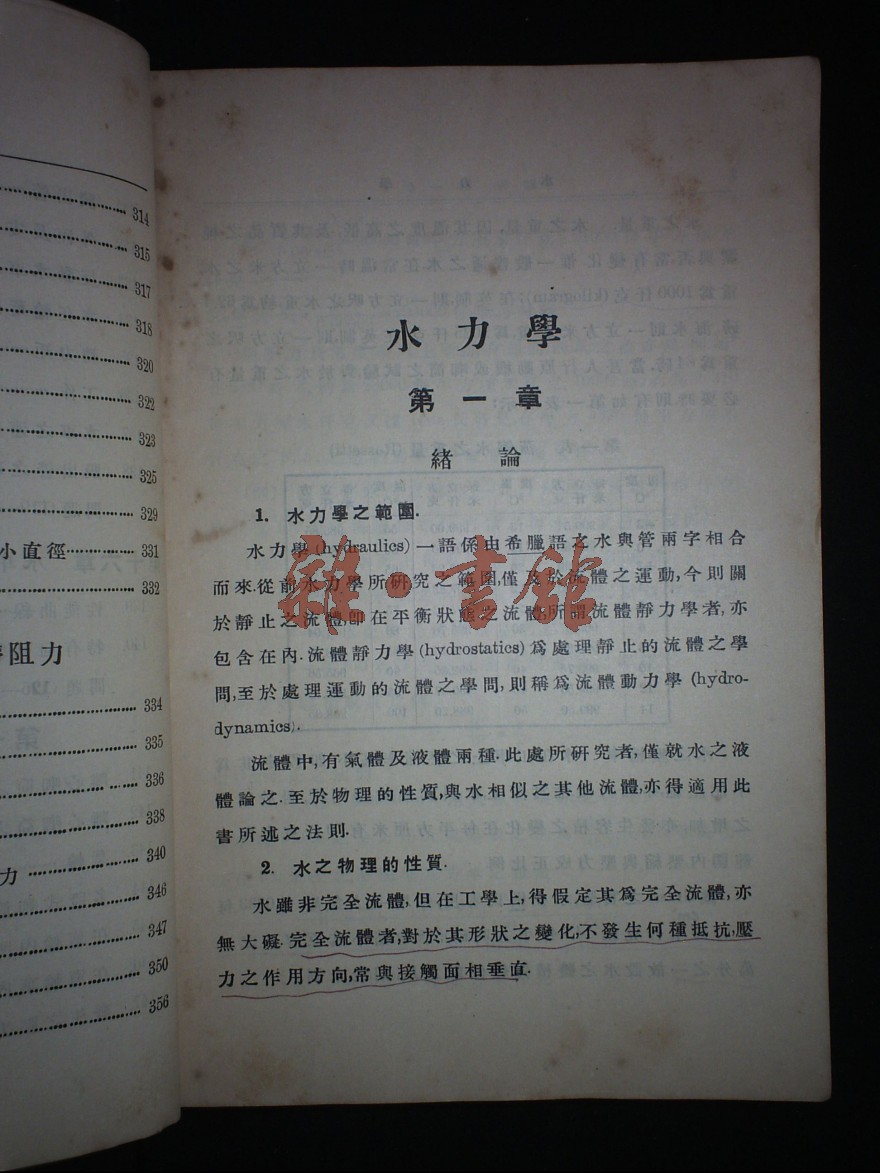 314
315
317
318
320
322
323
325
329
小直徑 331
332
阻力
334
335
336
338
340
力 346
347
350
356
水力學
第一章
緒論
1. 水力學之範圍.
水力學 (hydraulics) 一語係由希臘語之水與管兩字相合
而來.從前水力學所研究之範圍,僅及於流體之運動,今則關
於靜止之流體,卽在平衡狀態之流體,所謂流體靜力學者,亦
包含在內.流體靜力學 (hydrostatics) 爲處理靜止的流體之學
問,至於處理運動的流體之學問,則稱爲流體動力學 (hydro-
dynamics).
流體中,有氣體及液體兩種.此處所研究者,僅就水之液
體論之.至於物理的性質,與水相似之其他流體,亦得適用此
書所述之法則.
2. 水之物理的性質.
水雖非完全流體,但在工學上,得假定其爲完全流體,亦
無大礙.完全流體者,對於其形狀之變化,不發生何種抵抗,壓
力之作用方向,常與接觸面相垂直.
雜·書館